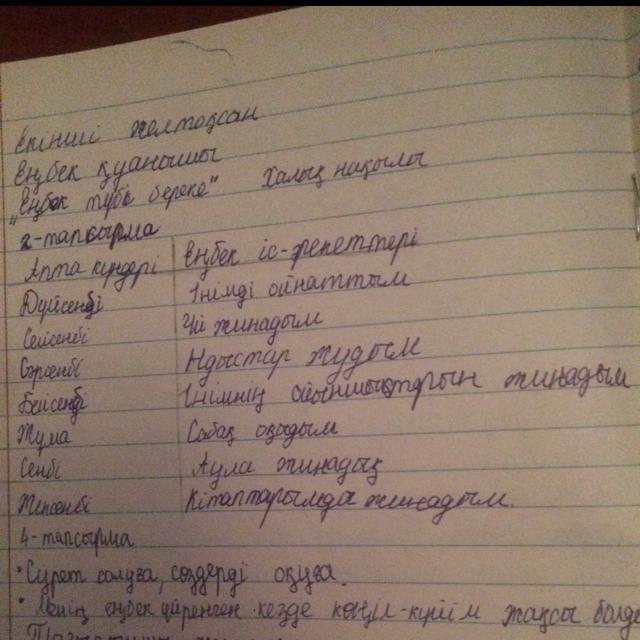 Екінші желтоқсан
Еңбек қуанышы
"Еңбек түбі береке" Халық нақылы
2-тапсырма
Апта күндері Еңбек іс-әрекеттері
Дүйсенбі Інімді ойнаттым
Сейсенбі Үй жинадым
Сәрсенбі Ыдыстар жудым
Бейсенбі Інімнің ойыншықтарын жинадым
Жұма Сабақ оқыдым
Сенбі Аула жинадық
Жексенбі Кітаптарымды жинадым.
4-тапсырма
• Сурет салуға, сөздерді оқуға.
• Менің еңбек үйренген кезде көңіл-күйім жақсы болды